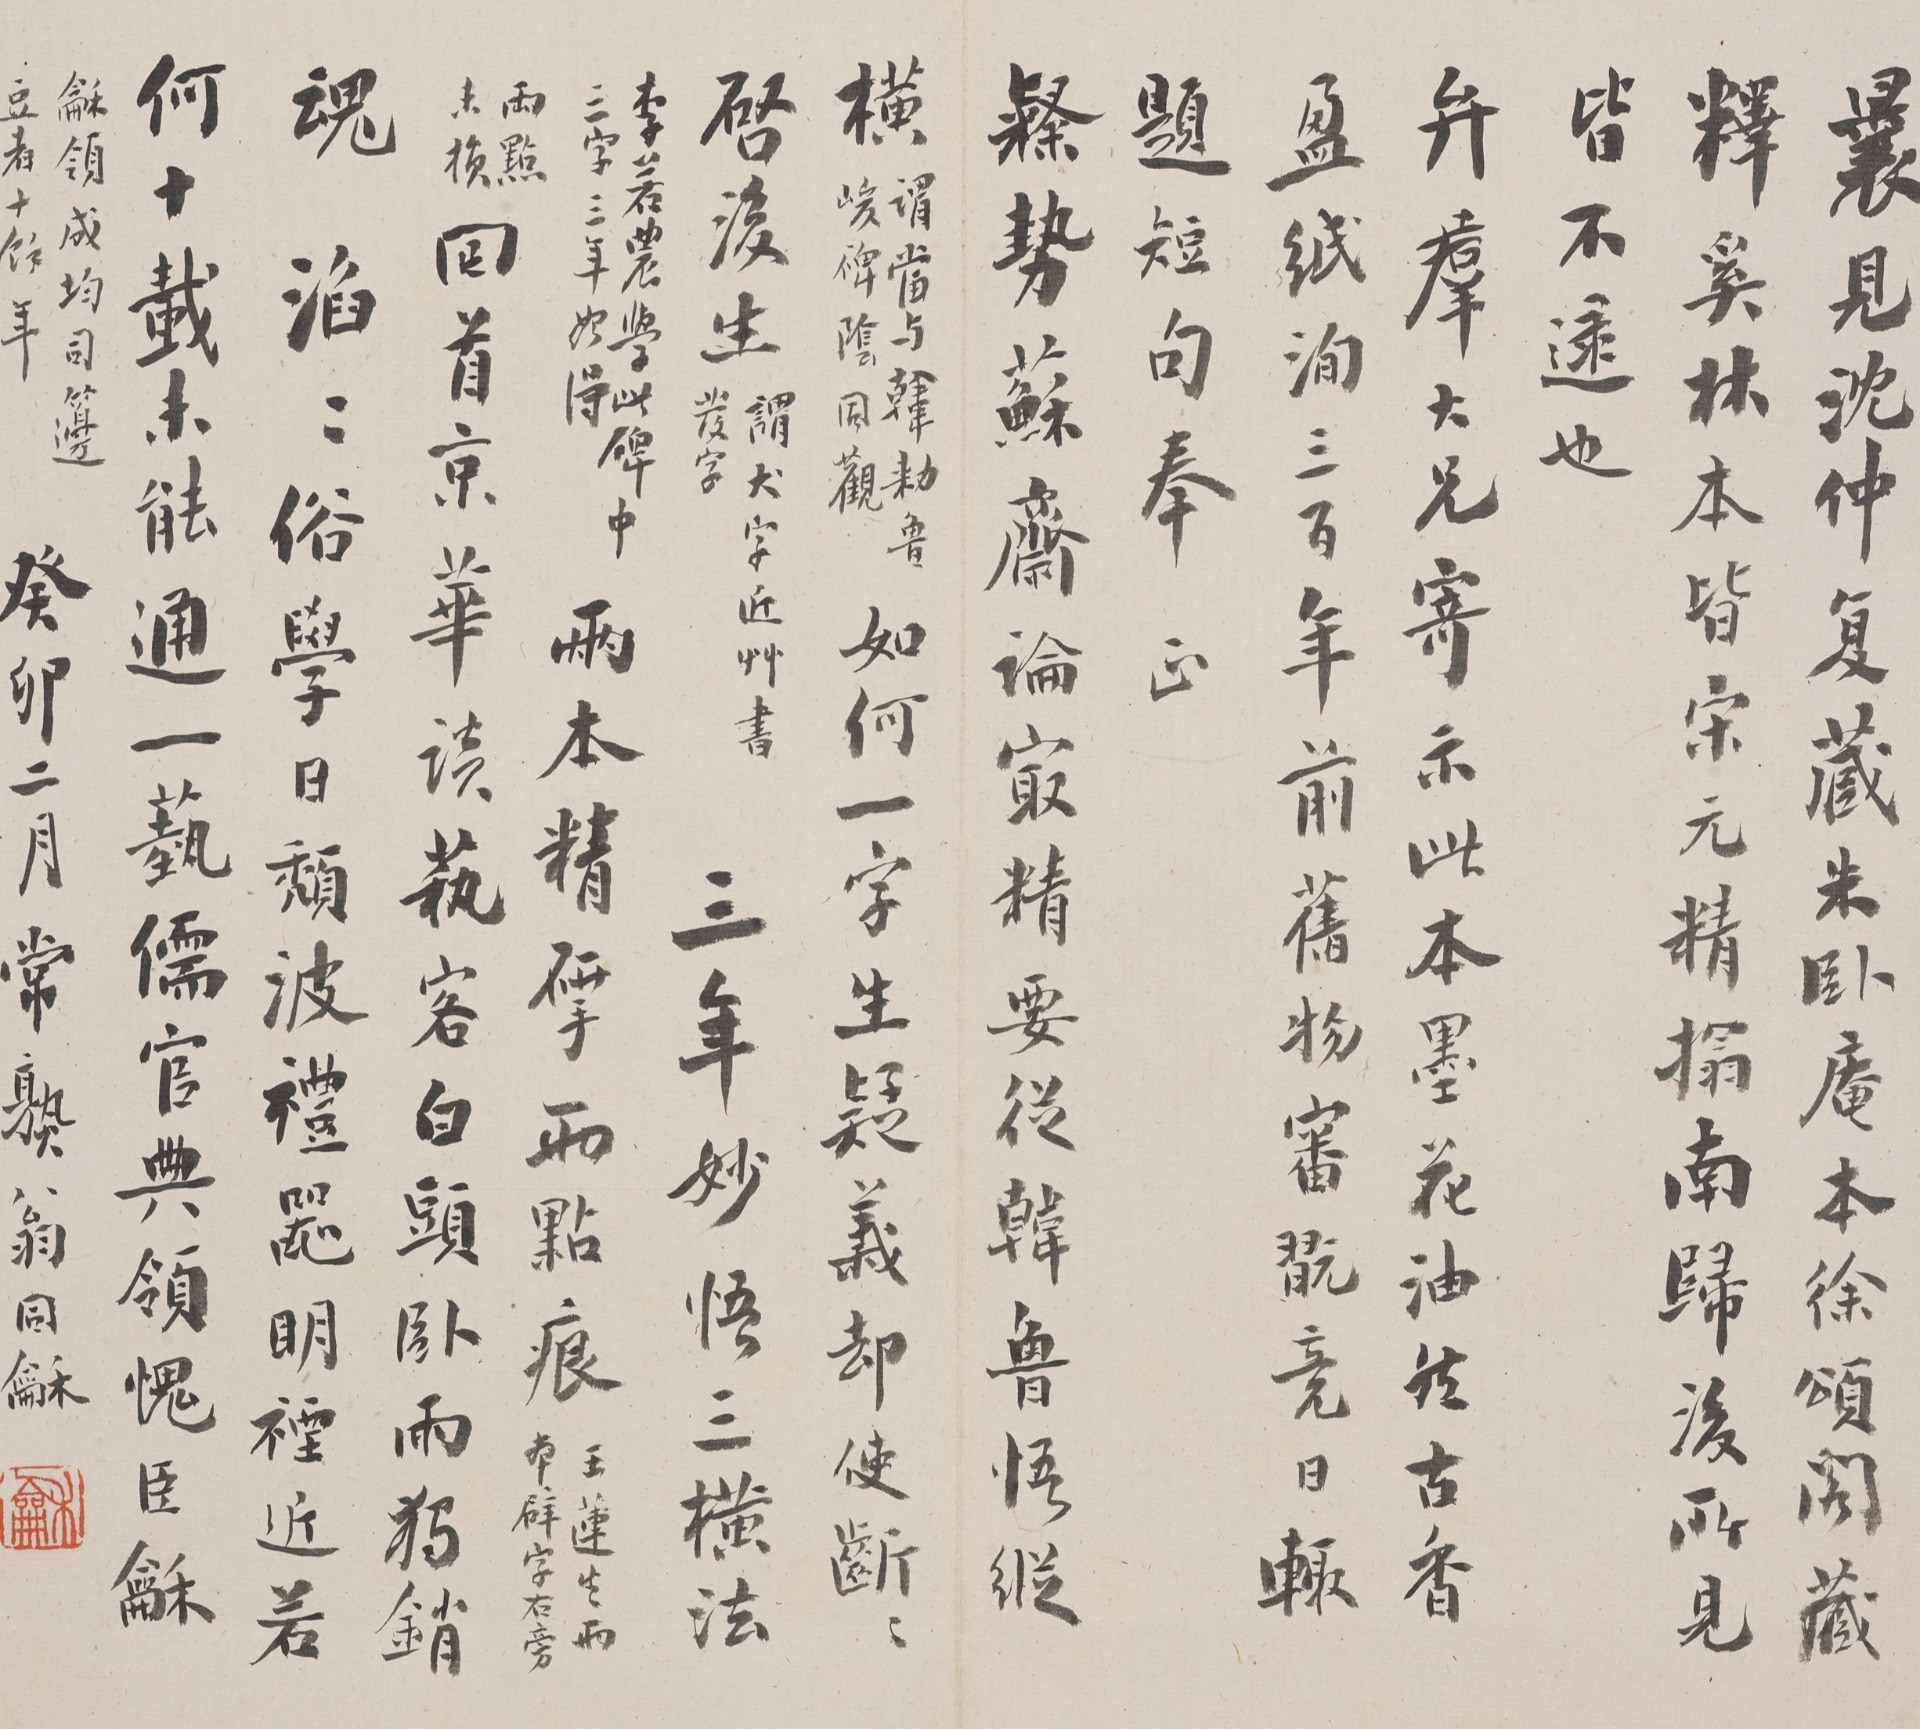 曩見沈仲复藏朱臥庵本徐頌閣藏
釋奚林本皆宋元精搨南歸後所見
皆不逮也
弁羣大兄寄示此本墨花油然古香
盈紙洵三百年前舊物審翫竟日輙
題短句奉 正
隸勢蘇齋論冣精要從韓魯悟縱
橫 謂當与韓勑魯峻碑陰同觀 如何一字生疑義却使齗〻
啓後生 謂犬字近艸書發字 三年妙悟三橫法
李若農學此碑中二字三年始得 兩本精揅兩點痕 王蓮生兩本辟字右旁
兩點未損 回首京華談執客白頭臥雨獨銷
魂 滔〻俗學日頹波禮器明禋近若
何十載未能通一藝儒官典領愧臣龢
龢領成均司籩豆者十餘年 癸卯二月常熟翁同龢
龢